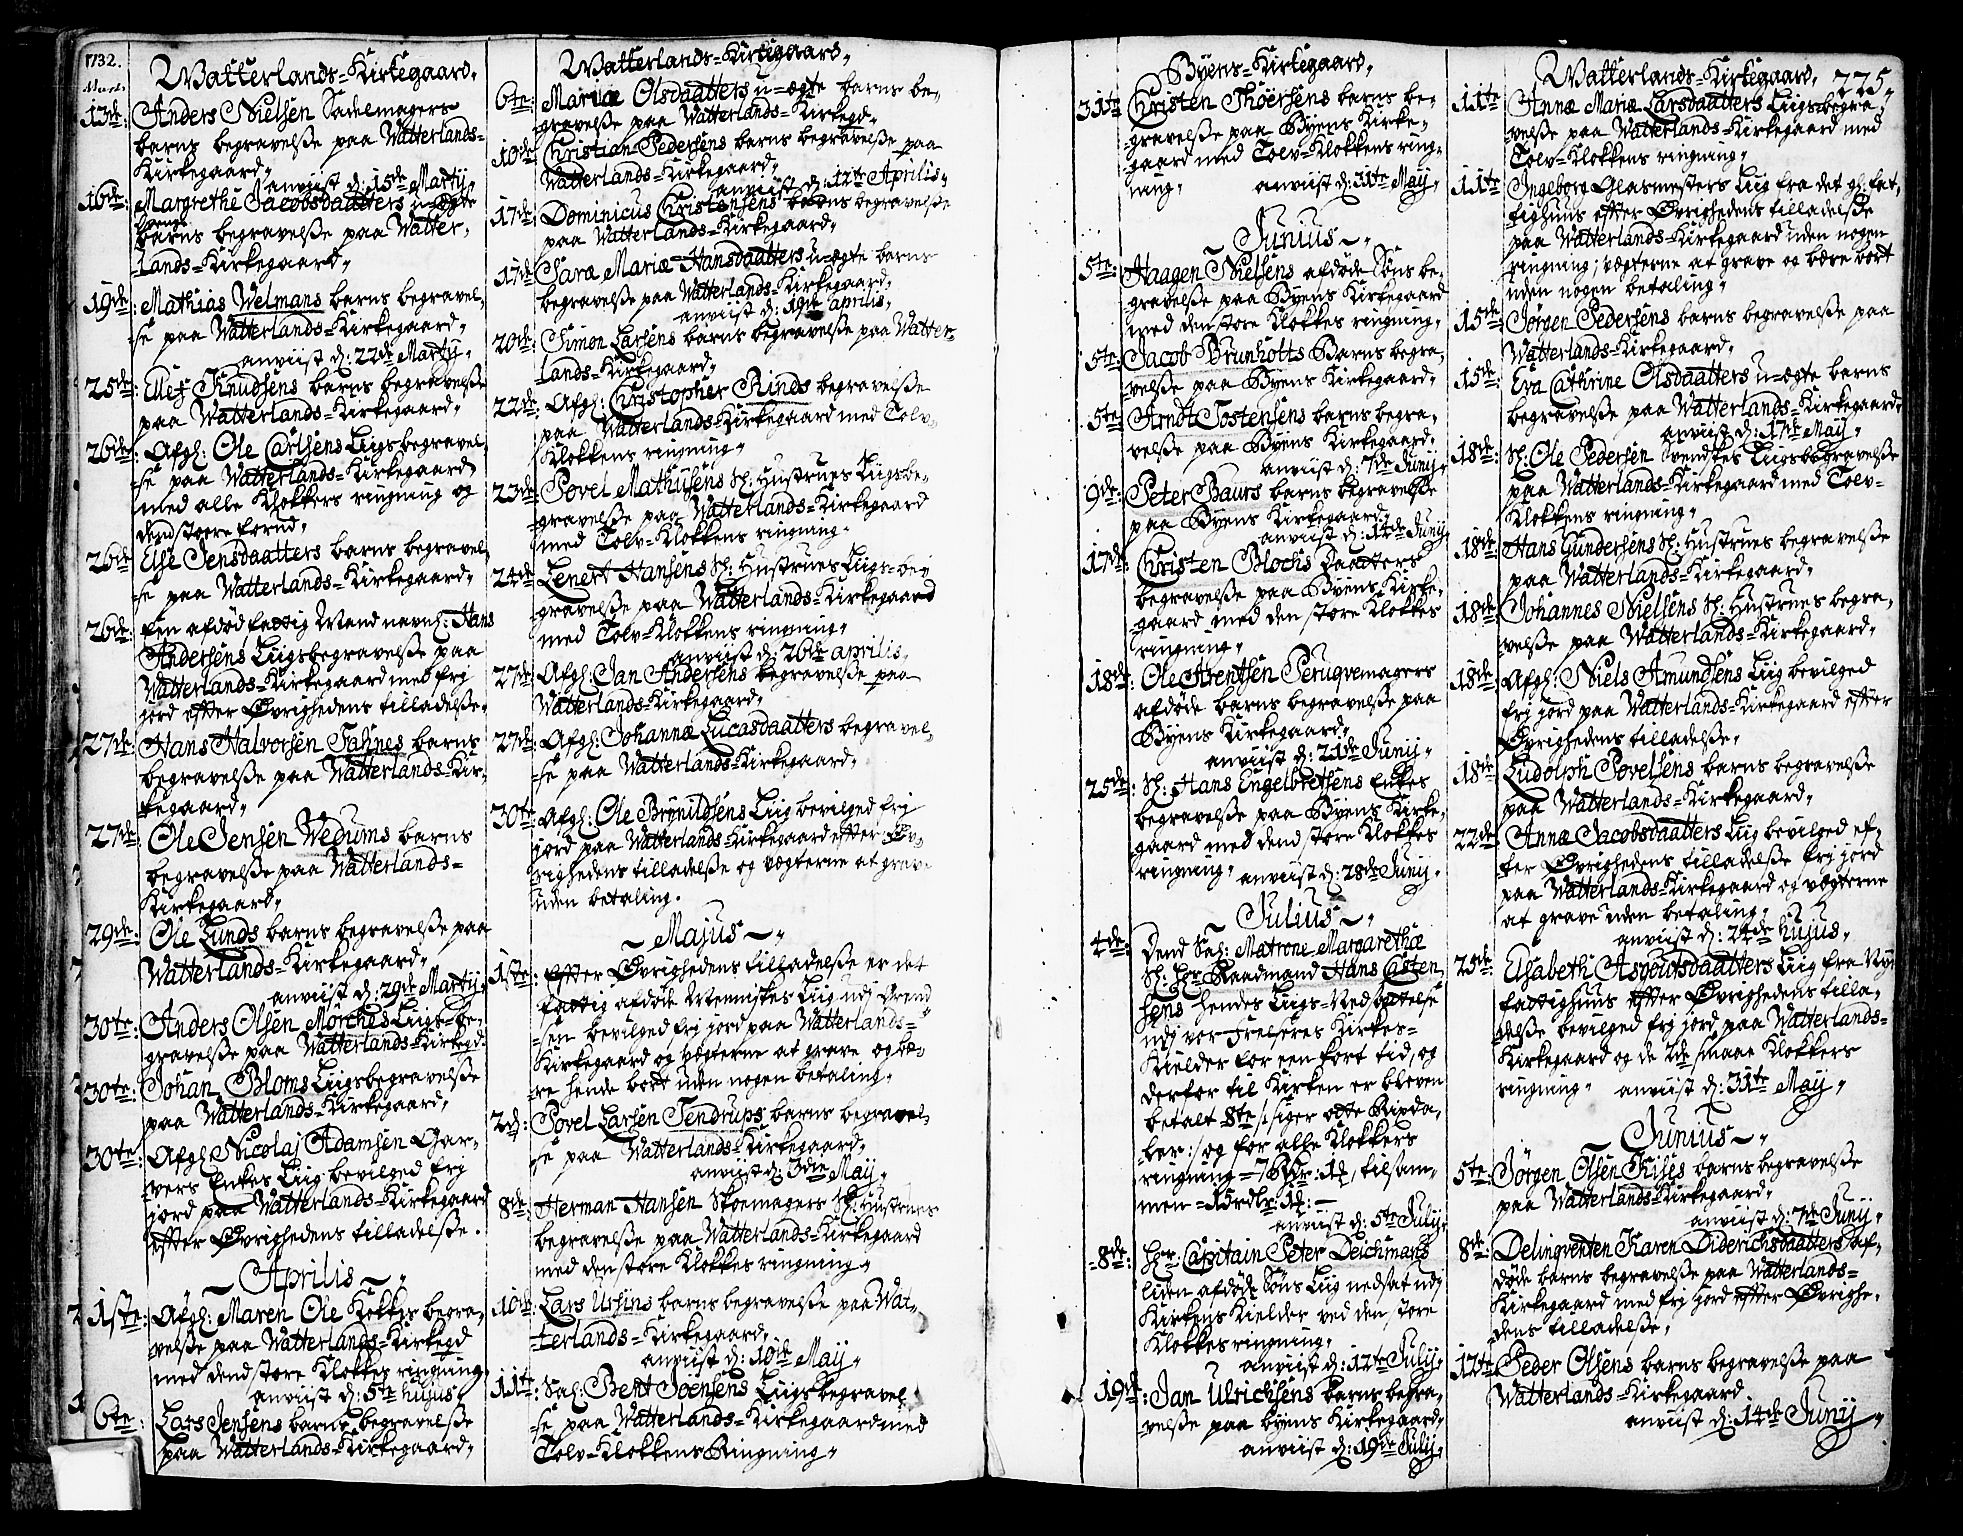 1732.
Watterlands=Kirkegaard,
Mart.
13de: Anders Nielsen Sadelmagers
barns begravelse paa Watterlands=
Kirkegaard,
anviist d: 15de Martij,
16de: Margrethe Jacobsdaatters u=ægte
barns begravelse paa Watter,
lands=Kirkegaard,
19de: Mathias Welmans barns begravel,
se paa Watterlands=Kirkegaard,
anviist d: 22de Martij,
25de: Elief Knudsens barns begravelse
paa Watterlands=Kirkegaard,
26de: Afg: Ole Carlsens Liigs begravel,
se paa Watterlands=Kirkegaard
med alle Klokkers ringning og
dend stoere forud,
26de: Else Jensdaatters barns begravel,
se paa Watterlands=Kirkegaard,
26de: Een afdød fattig Mand navnl: Hans
Andersens Liigsbegravelse paa
Watterlands=Kirkegaard med frj
jord efter Øvrighedens tilladelse.
27de: Hans Halvorsen Fahnes barns
begravelse paa Watterlands=Kir,
kegaard,
27de: Ole Jensen Wedums barns
begravelse paa Watterlands=
Kirkegaard,
29de: Ole Lunds barns begravelse paa
Watterlands=Kirkegaard,
anviist d: 29de Martij,
30te: Anders Olsen Mørches Liigs=be,
gravelse paa Watterlands=Kirkegd:
30te: Johan Bloms Liigsbegravelse
paa Watterlands=Kirkegaard,
30te: Afgl: Nicolaj Adamsen Gar,
vers Enkes Liig bevilged frj
jord paa Watterlands=Kirkegaard
efter Øvrighedens tilladelse.
~ Aprilis ~,
1ste: Afgl: Maren Ole Kokkes begra,
velse paa Watterlands=Kirkegd
med dend store Klokkes ringning,
anviist d: 5te hujus,
6te: Lars Jensens barns begravelse
paa Watterlands=Kirkegaard,
Watterlands=Kirkegaard,
6te: Mariæ Olsdaatters u=ægte barns be,
gravelse paa Watterlands=Kirkegd,
10de: Christian Pedersens barns begravelse paa
Watterlands=Kirkegaard,
anviist d: 12te Aprilis,
17de: Dominicus Christensens barns begravelse
paa Watterlands=Kirkegaard,
17de: Saræ Mariæ Hansdaatters u=ægte barns
begravelse paa Watterlands=Kirkegaard,
anviist d: 19de aprilis,
20de: Simon Larsens barns begravelse paa Watter,
lands=Kirkegaard,
22de: Afgl: Christopher Rinds begravelse
paa Watterlands=Kirkegaard med Tolv-
Klokkens ringning,
23de: Povel Mathisens Sl: Hustrues Liigsbe,
gravelse paa Watterlands=Kirkegaard
med Tolv=Klokkens ringning.
24de: Lenert Hansens Sl: Hustrues Liigs=be,
gravelse paa Watterlands=Kirkegaard
med Tolv=Klokkens ringning,
anviist d: 26de aprilis,
27de: Afgl: Jan Andersens begravelse paa
Watterlands=Kirkegaard,
27de: Afgl: Johannæ Lucasdaatters begravel,
se paa Watterlands=Kirkegaard,
30te: Afgl: Ole Brynildsens Liig bevilged frj
jord paa Watterlands=Kirkegaard efter Øv,
righedens tilladelse og vægterne at grave
uden betaling.
~ Majus ~,
1ste: Efter Øvrighedens tilladelse er det
fattig afdøde Menniskes Liig udj Grend
sen bevilged frj jord paa Watterlands=
Kirkegaard og vægterne at grave og bæ,
re hende bort uden nogen betaling,
2d: Povel Larsen Tendrups barns begravel,
se paa Watterlands=Kirkegaard,
anviist d: 3die Maij,
8de: Herman Hansen Skoemagers Sl: Hustrues
begravelse paa Watterlands=Kirkegaard
med den store Klokkes ringning,
10de: Lars Ursins barns begravelse paa Wat,
terlands=Kirkegaard,
anviist d: 10de Maij,
11te: Sal: Bent Joensens Liigs begravel,
se paa Watterlands=Kirkegaard med
Tolv=Klokkens Ringning,
Byens=Kirkegaard,
31te: Christen Thoersens barns be,
gravelse paa Byens Kirke,
gaard med Tolv=Klokkens ring,
ning, anviist d: 31te Maij,
~ Junius ~,
5te: Haagen Nielsens afdøde Søns be,
gravelse paa Byens Kirkegaard
med den store Klokkes ringning,
5te: Jacob Brunholtts Barns begra,
velse paa Byens Kirkegaard,
5te: Arndt Tostensens barns begra,
velse paa Byens Kirkegaard,
anviist d: 7de Junij,
9de: Peter Baurs barns begravelse
paa Byens Kirkegaard,
anviist d: 14de Junij,
17de: Christen Blochs Daatters
begravelse paa Byens Kirke,
gaard med den store Klokkes
ringning,
18de: Ole Arentsen Peruqvemagers
afdøde barns begravelse paa
Byens Kirkegaard,
anviist d: 21de Junij,
25de: Sl: Hans Engelbretsens Enkes
begravelse paa Byens Kirke,
gaard med dend store Klokkes
ringning, anviist d: 28de Junij,
~ Julius ~,
4de: Dend Sal: Matrone Margarethæ
Sl: Hr Raadmand Hans Casten
sens hendes Liigs=Nedsættelse
udj vor Frelseres Kirkes=
Kielder for een kort tid, og
derfor til Kirken er bleven
betalt 8te /: siger otte Rixda,
ler :/ og for alle Klokkers
ringning = 7 Rdr: 1 , tilsam,
men = 15 rdlr: 1 : —
anviist d: 5te Julij,
8de: Hr: Capitain Peter Deichmans
liden afdøde Søns Liig nedsat udj
Kirkens Kielder ved den store
Klokkes ringning,
anviist d: 12te Julij,
19de: Jan Ulrichsens barns begra,
velse paa byens Kirkegaard,
anviist d: 19de Julij,
Watterlands=Kirkegaard, 225,
11te: Annæ Mariæ Larsdaatters Liigsbegra,
velse paa Watterlands=Kirkegaard med
Tolv=Klokkens ringning,
11te: Ingeborg Glasmesters Liig fra det gl: Fat,
tighuus efter Øvrighedens tilladelse
paa Watterlands=Kirkegaard uden nogen
ringning; vægterne at grave og bære bort
uden nogen betaling,
15de: Jørgen Pedersens barns begravelse paa
Watterlands=Kirkegaard,
15de: Eva Cathrine Olsdaatters u=ægte barns
begravelse paa Watterlands=Kirkegaard,
anviist d: 17de Maij,
18de: Sl: Ole Pedersen Svendses Liigsbegravelse
paa Watterlands=Kirkegaard med Tolv-
Klokkens ringning,
18de: Hans Gundersens Sl: Hustrues begravelse
paa Watterlands=Kirkegaard,
18de: Johannes Nielsens Sl: Hustrues begra,
velse paa Watterlands=Kirkegaard,
18de: Afgl: Niels Amundsens Liig bevilged
frj jord paa Watterlands=Kirkegaard efter
Øvrighedens tilladelse,
18de: Ludolph Povelsens barns begravelse
paa Watterlands=Kirkegaard,
22de: Annæ Jacobsdaatters Liig bevilged ef,
ter Øvrighedens tilladelse frj jord
paa Watterlands=Kirkegaard og vægterne
at grave uden betaling,
anviist d: 24de hujus,
25de: Elsabeth Asvoutsdaatters Liig fra Nye
fattighuus efter Øvrighedens tilla,
delse bevilged frj jord paa Watterlands=
Kirkegaard og de 2de smaae Klokkers
ringning, anviist d: 31te Maij,
~ Junius ~,
5te: Jørgen Olsen Friises barns begravelse
paa Watterlands=Kirkegaard,
anviist d: 7de Junij,
8de: Delinqventen Karen Diderichsdaatters af,
døde barns begravelse paa Watterlands=
Kirkegaard med frj jord efter Øvrighe,
dens tilladelse,
12te: Peder Olsens barns begravelse paa
Watterlands=Kirkegaard
anviist d: 14de Junij,